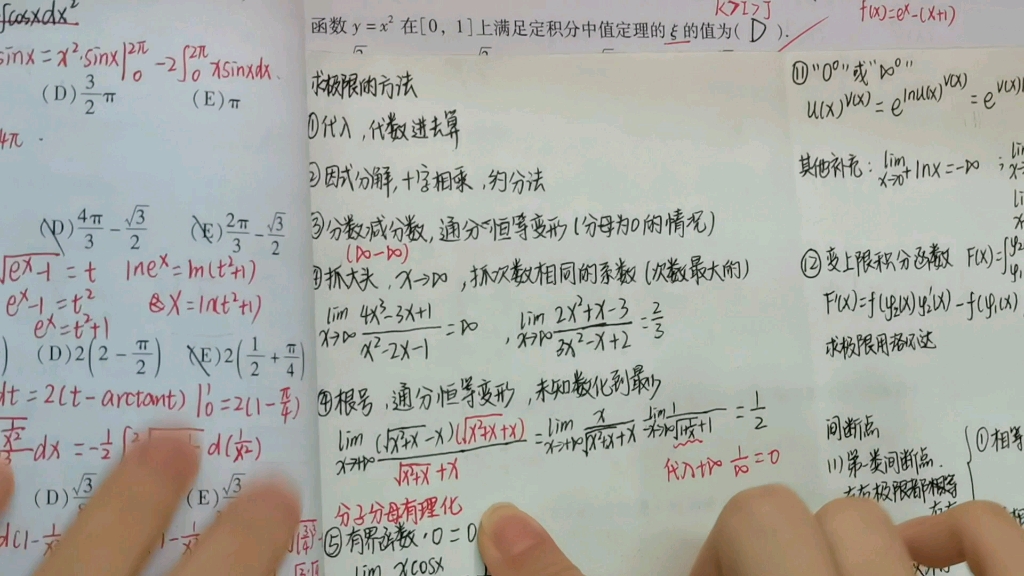 fcosxdx²
sinx = x²·sinx|₀^2π - 2∫₀^2π xsinxdx.
(D) 3/2 π (E) π
4π .
(D) 4π/3 - √3/2 (E) 2π/3 - √3/2
√(eˣ-1) = t lneˣ = ln(t²+1)
eˣ-1 = t² x = ln(t²+1)
eˣ = t²+1
(D) 2(2 - π/2) (E) 2(1/2 + π/4)
dt = 2(t - arctant)|₀¹ = 2(1 - π/4)
dx = -1/2 d(1/x²)
(D) √3 (E) √3
函数 y = x² 在[0, 1]上满足定积分中值定理的 ξ 的值为( D ).
f(x) = eˣ - (x+1)
求极限的方法
①代入,代数进去算
②因式分解,十字相乘,约分法
③分数减分数,通分→恒等变形(分母为0的情况)
(∞-∞)
④抓大头,x→∞,抓次数相同的系数(次数最大的)
lim x→∞ (4x³-3x+1)/(x²-2x-1) = ∞ , lim x→∞ (2x²+x-3)/(3x²-x+2) = 2/3
④根号,通分恒等变形,未知数化到最少
lim x→+∞ (√(x²+x)-x)(√(x²+x)+x)/(√(x²+x)+x) = lim x→+∞ x/(√(x²+x)+x) = 1/2
代入+∞ 1/∞ = 0
分子分母有理化
⑤有界函数·0 = 0
lim xcosx
⑪"0⁰"或"∞⁰"
u(x)^v(x) = e^lnu(x)^v(x) = e^v(x)
其他补充: lim x→0⁺ lnx = -∞ ;
⑫变上限积分函数 F(x) = ∫
F'(x) = f(φ₂(x))φ₂'(x) - f(φ₁(x)
求极限用洛必达
间断点
(1)第一类间断点.
左右极限都
①相等